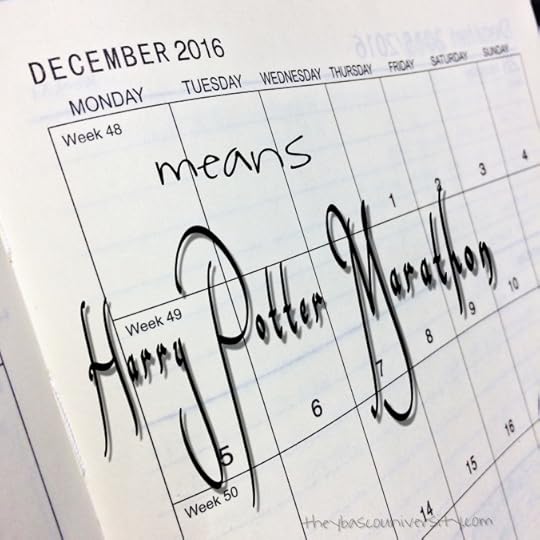 DECEMBER 2016
MONDAY TUESDAY WEDNESDAY THURSDAY FRIDAY SATURDAY SUNDAY
Week 48
means
1 2 3 4
Harry Potter Marathon
Week 49
5 6 7 8 9 10
Week 50
14 15 16
theybascouniversity.com